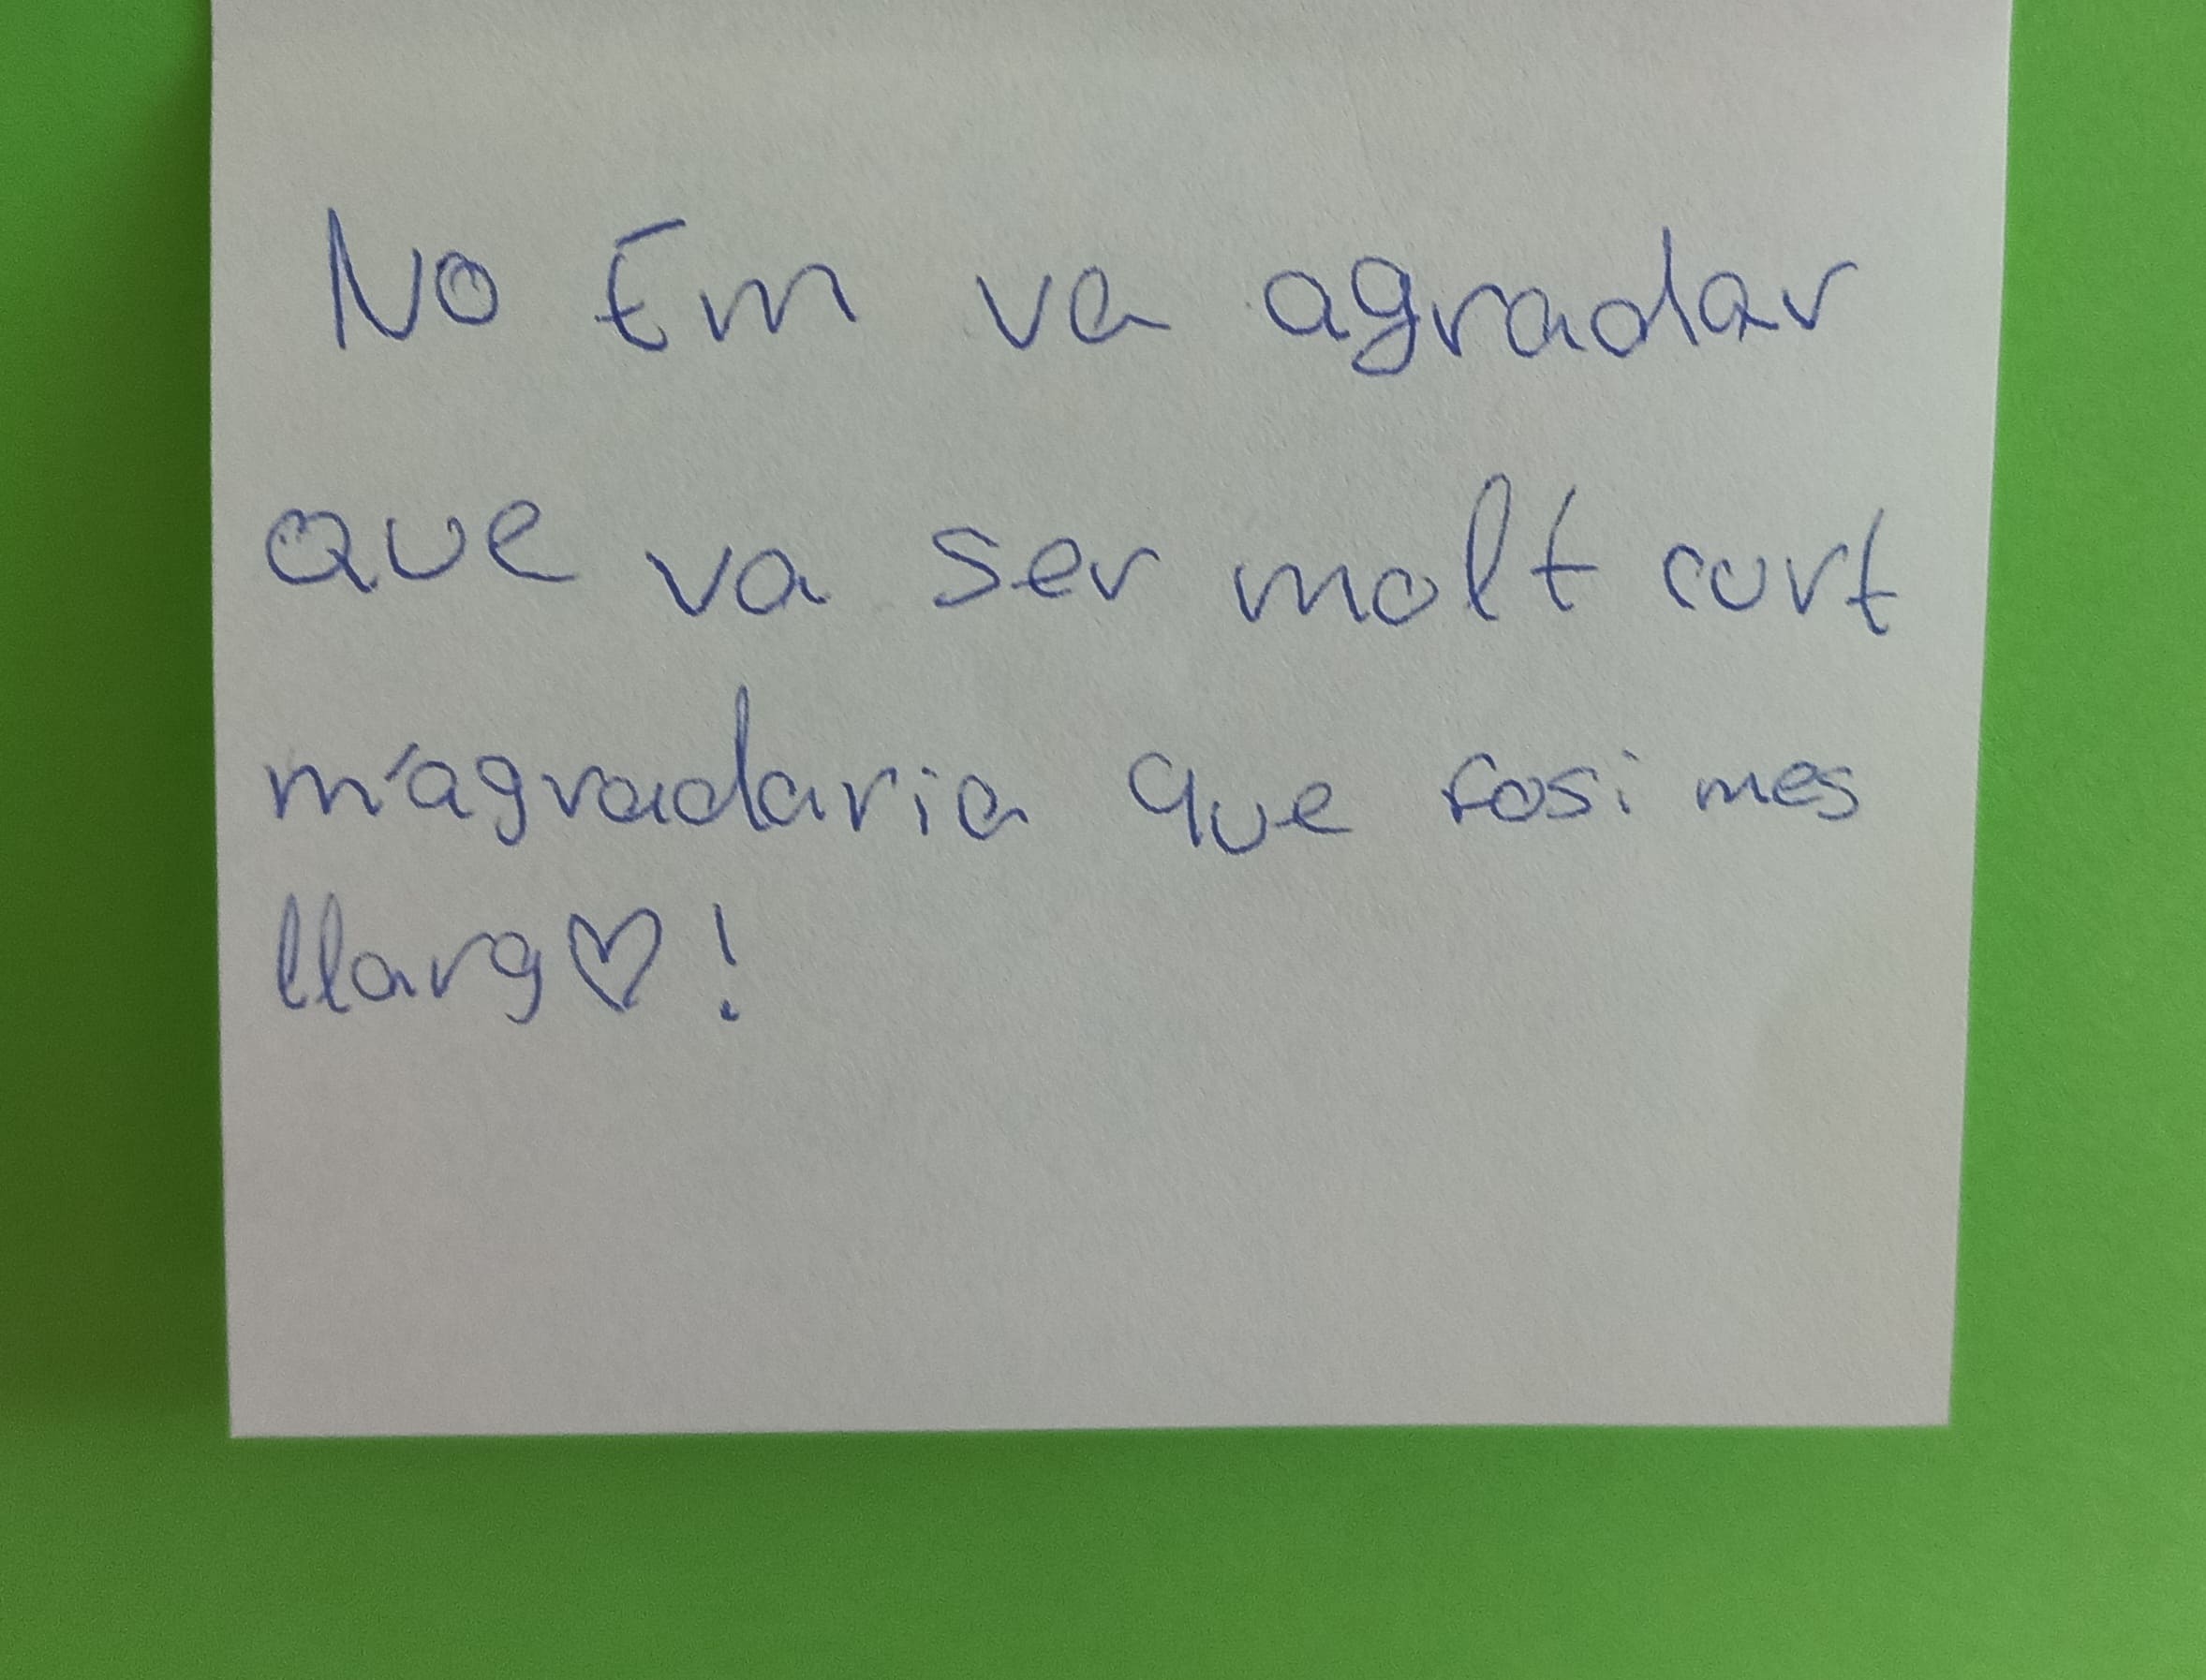 No Em va agradar
que va ser molt curt
m'agradaria que fosi mes
llarg♡!